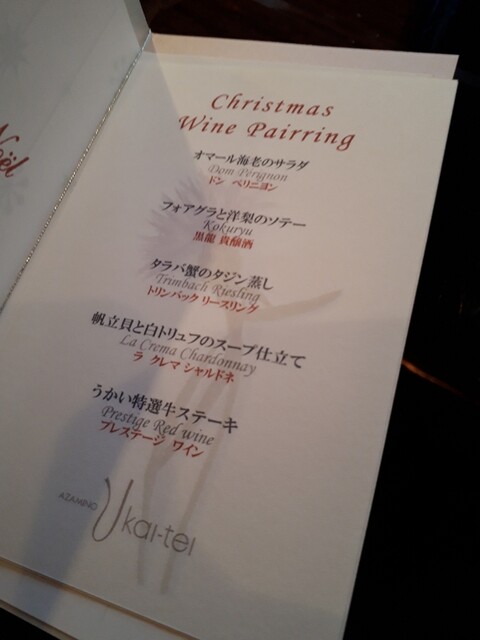 Noël
Christmas
Wine Pairring
オマール海老のサラダ
Dom Pérignon
ドン ペリニヨン
フォアグラと洋梨のソテー
Kokuryu
黒龍 貴醸酒
タラバ蟹のタジン蒸し
Trimbach Riesling
トリンバック リースリング
帆立貝と白トリュフのスープ仕立て
La Crema Chardonnay
ラ クレマ シャルドネ
うかい特選牛ステーキ
Prestige Red wine
プレステージ ワイン
AZAMINO Ukai-tei